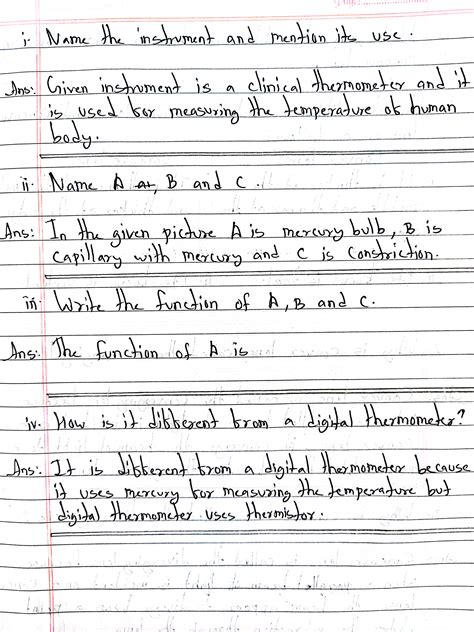 i. Name the instrument and mention its use.
Ans: Given instrument is a clinical thermometer and it
is used for measuring the temperature of human
body.
ii. Name A B and C.
Ans: In the given picture A is mercury bulb, B is
capillary with mercury and C is constriction.
iii. Write the function of A, B and C.
Ans: The function of A is
iv. How is it different from a digital thermometer?
Ans: It is different from a digital thermometer because
it uses mercury for measuring the temperature but
digital thermometer uses thermistor.